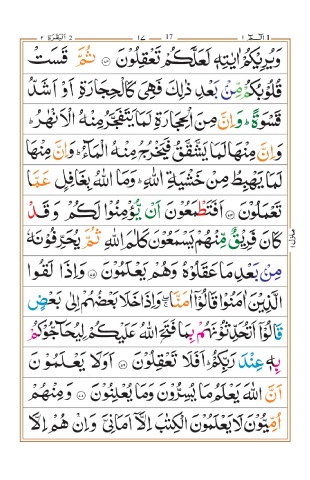 البقرة ٢ 2 ١٧ 17 1 الٓمّٓ ١
وَيُرِيْكُمْ اٰيٰتِهٖ لَعَلَّكُمْ تَعْقِلُوْنَ ۝٧٣ ثُمَّ قَسَتْ
قُلُوْبُكُمْ مِّنْۢ بَعْدِ ذٰلِكَ فَهِيَ كَالْحِجَارَةِ اَوْ اَشَدُّ
قَسْوَةً ؕ وَاِنَّ مِنَ الْحِجَارَةِ لَمَا يَتَفَجَّرُ مِنْهُ الْاَنْهٰرُ ؕ
وَاِنَّ مِنْهَا لَمَا يَشَّقَّقُ فَيَخْرُجُ مِنْهُ الْمَآءُ ؕ وَاِنَّ مِنْهَا
لَمَا يَهْبِطُ مِنْ خَشْيَةِ اللّٰهِ ؕ وَمَا اللّٰهُ بِغَافِلٍ عَمَّا
تَعْمَلُوْنَ ۝٧٤ اَفَتَطْمَعُوْنَ اَنْ يُّؤْمِنُوْا لَكُمْ وَقَدْ
كَانَ فَرِيْقٌ مِّنْهُمْ يَسْمَعُوْنَ كَلٰمَ اللّٰهِ ثُمَّ يُحَرِّفُوْنَهٗ
مِنْۢ بَعْدِ مَا عَقَلُوْهُ وَهُمْ يَعْلَمُوْنَ ۝٧٥ وَاِذَا لَقُوا
الَّذِيْنَ اٰمَنُوْا قَالُوْۤا اٰمَنَّا ۖۚ وَاِذَا خَلَا بَعْضُهُمْ اِلٰى بَعْضٍ
قَالُوْۤا اَتُحَدِّثُوْنَهُمْ بِمَا فَتَحَ اللّٰهُ عَلَيْكُمْ لِيُحَآجُّوْكُمْ
بِهٖ عِنْدَ رَبِّكُمْ ؕ اَفَلَا تَعْقِلُوْنَ ۝٧٦ اَوَلَا يَعْلَمُوْنَ
اَنَّ اللّٰهَ يَعْلَمُ مَا يُسِرُّوْنَ وَمَا يُعْلِنُوْنَ ۝٧٧ وَمِنْهُمْ
اُمِّيُّوْنَ لَا يَعْلَمُوْنَ الْكِتٰبَ اِلَّاۤ اَمَانِيَّ وَاِنْ هُمْ اِلَّا